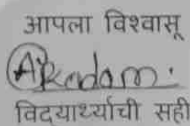 आपला विश्वासू
A Kadam.
विदयार्थ्याची सही